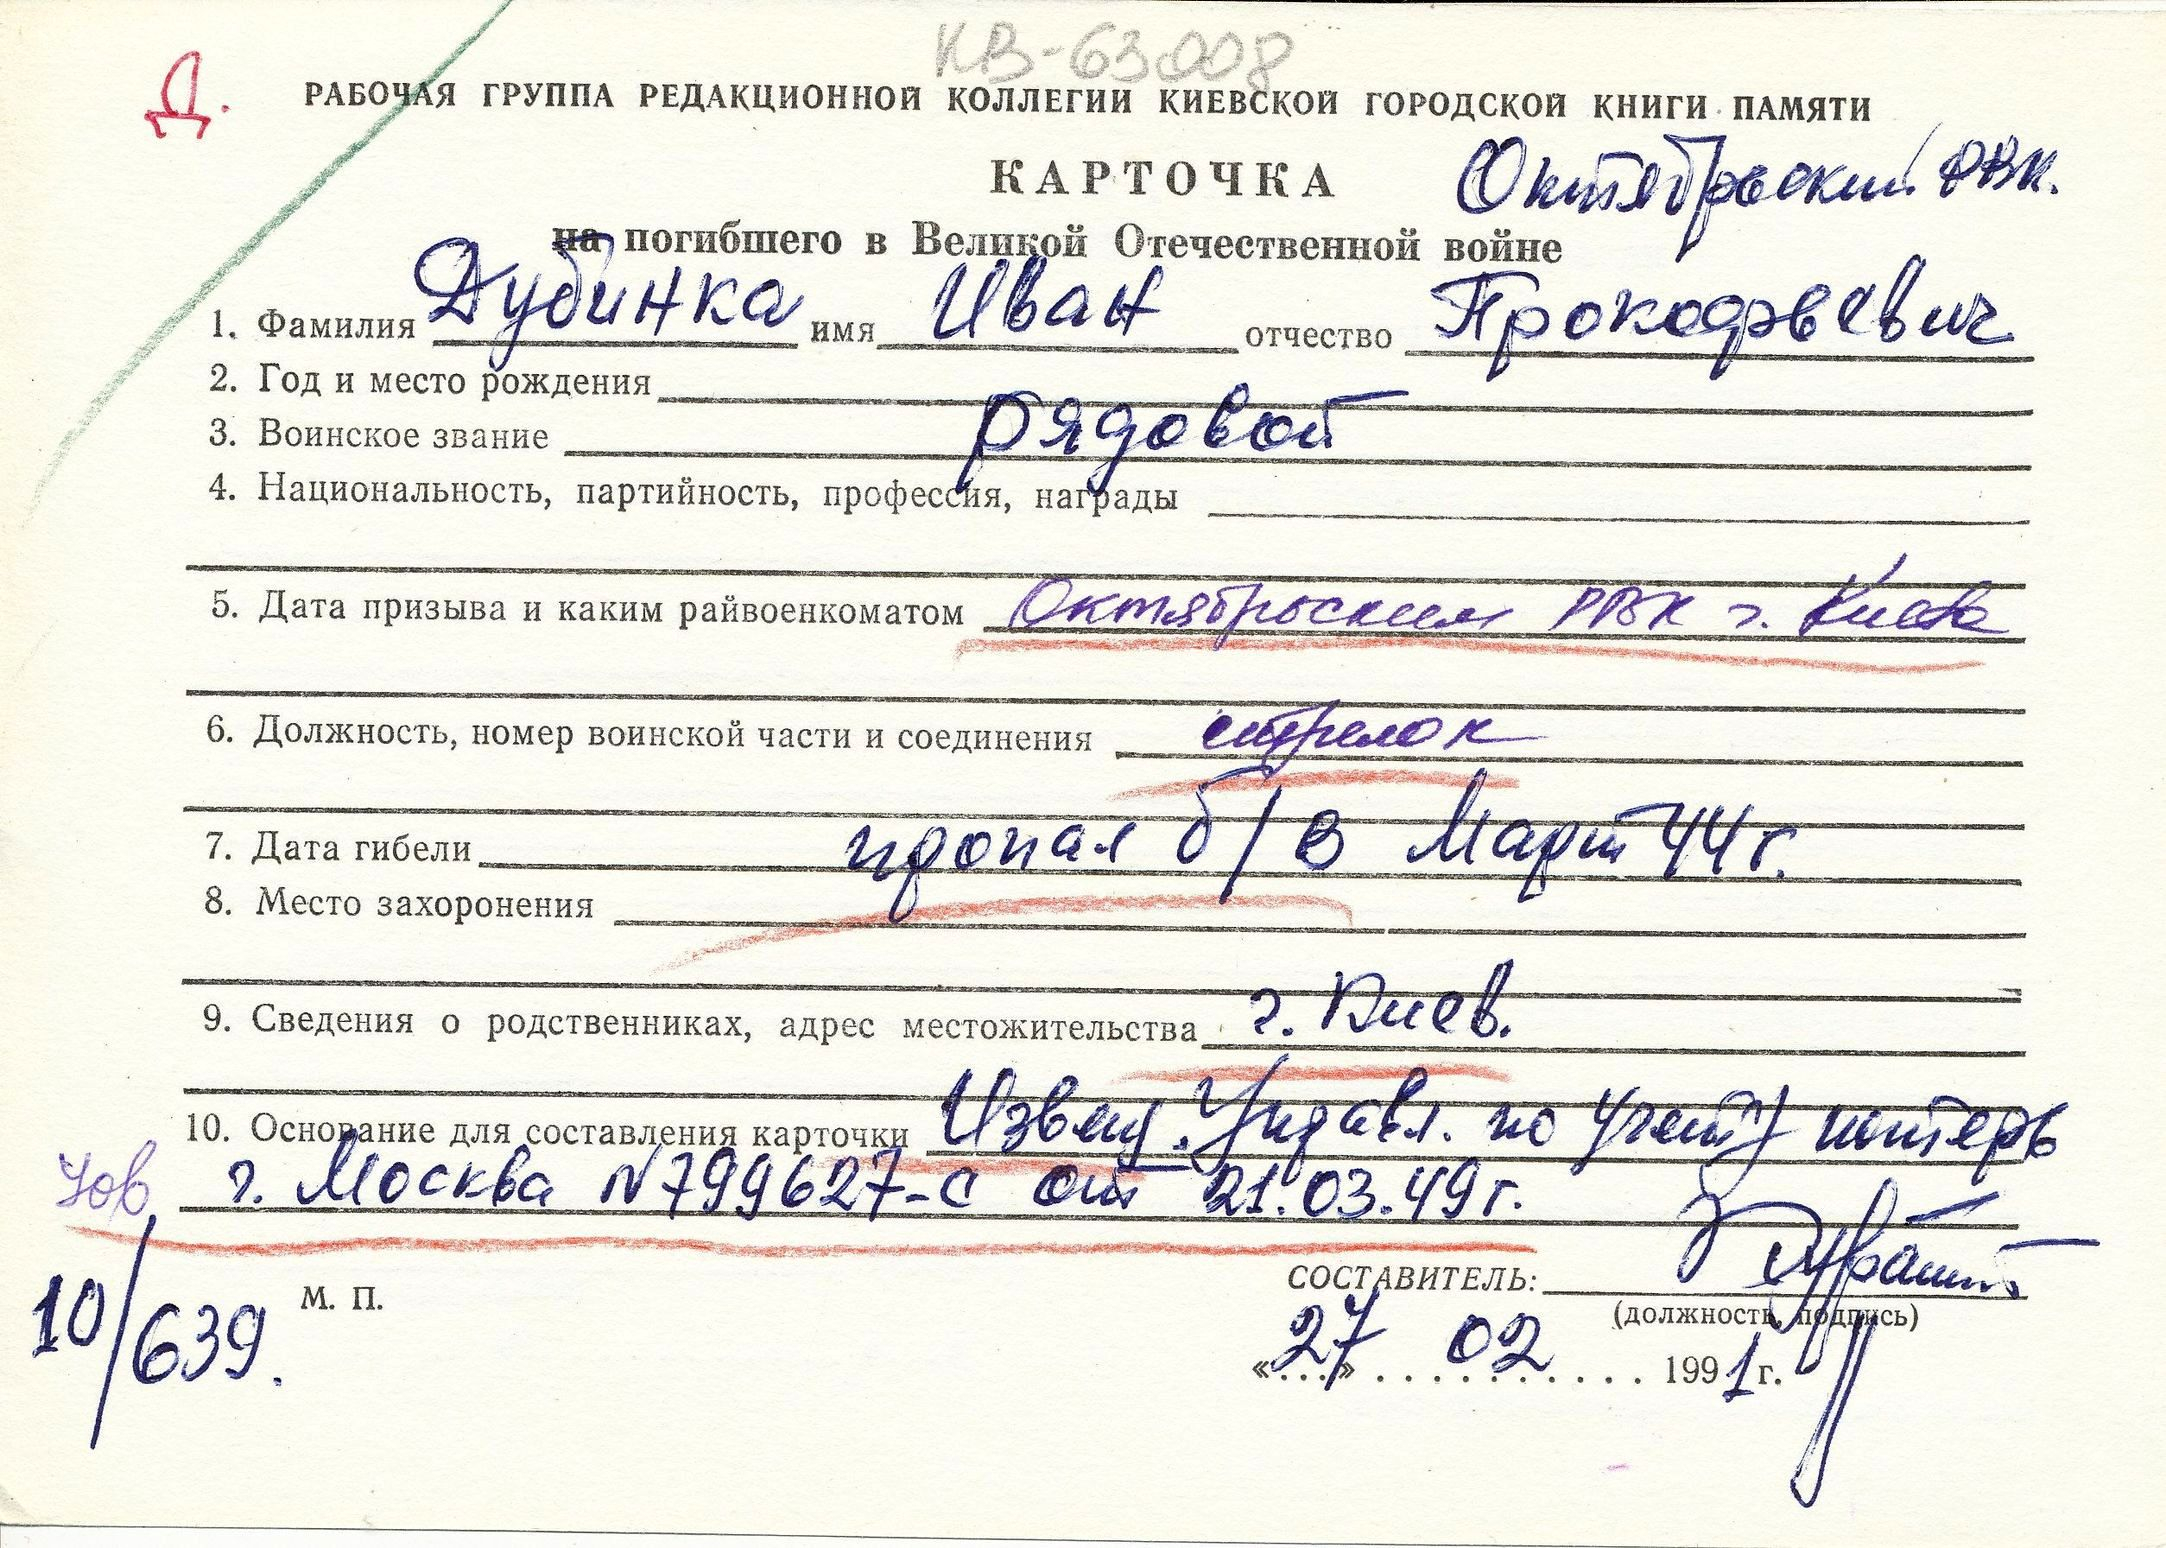 КВ-63008
Д.
РАБОЧАЯ ГРУППА РЕДАКЦИОННОЙ КОЛЛЕГИИ КИЕВСКОЙ ГОРОДСКОЙ КНИГИ ПАМЯТИ
КАРТОЧКА Октябрьский РВК.
на погибшего в Великой Отечественной войне
1. Фамилия Дубинка имя Иван отчество Прокофьевич
2. Год и место рождения
3. Воинское звание рядовой
4. Национальность, партийность, профессия, награды
5. Дата призыва и каким райвоенкоматом Октябрьским РВК г. Киева
6. Должность, номер воинской части и соединения стрелок
7. Дата гибели пропал б/в Март 44 г.
8. Место захоронения
9. Сведения о родственниках, адрес местожительства г. Киев.
10. Основание для составления карточки Извещ. Управл. по учету потерь
г. Москва N 799627-с от 21.03.49 г.
СОСТАВИТЕЛЬ:
М. П.
(должность, подпись)
10/639.
«27» 02 1991 г.